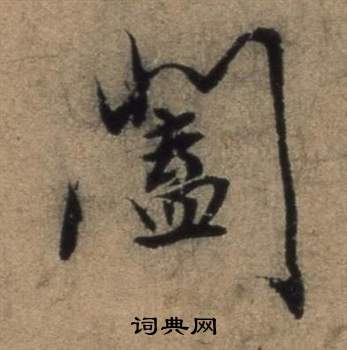 闔
词典网